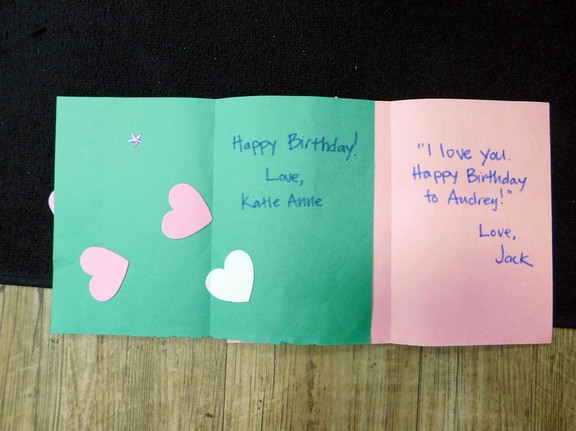 Happy Birthday!
Love,
Katie Anne
"I love you.
Happy Birthday
to Audrey!"
Love,
Jack